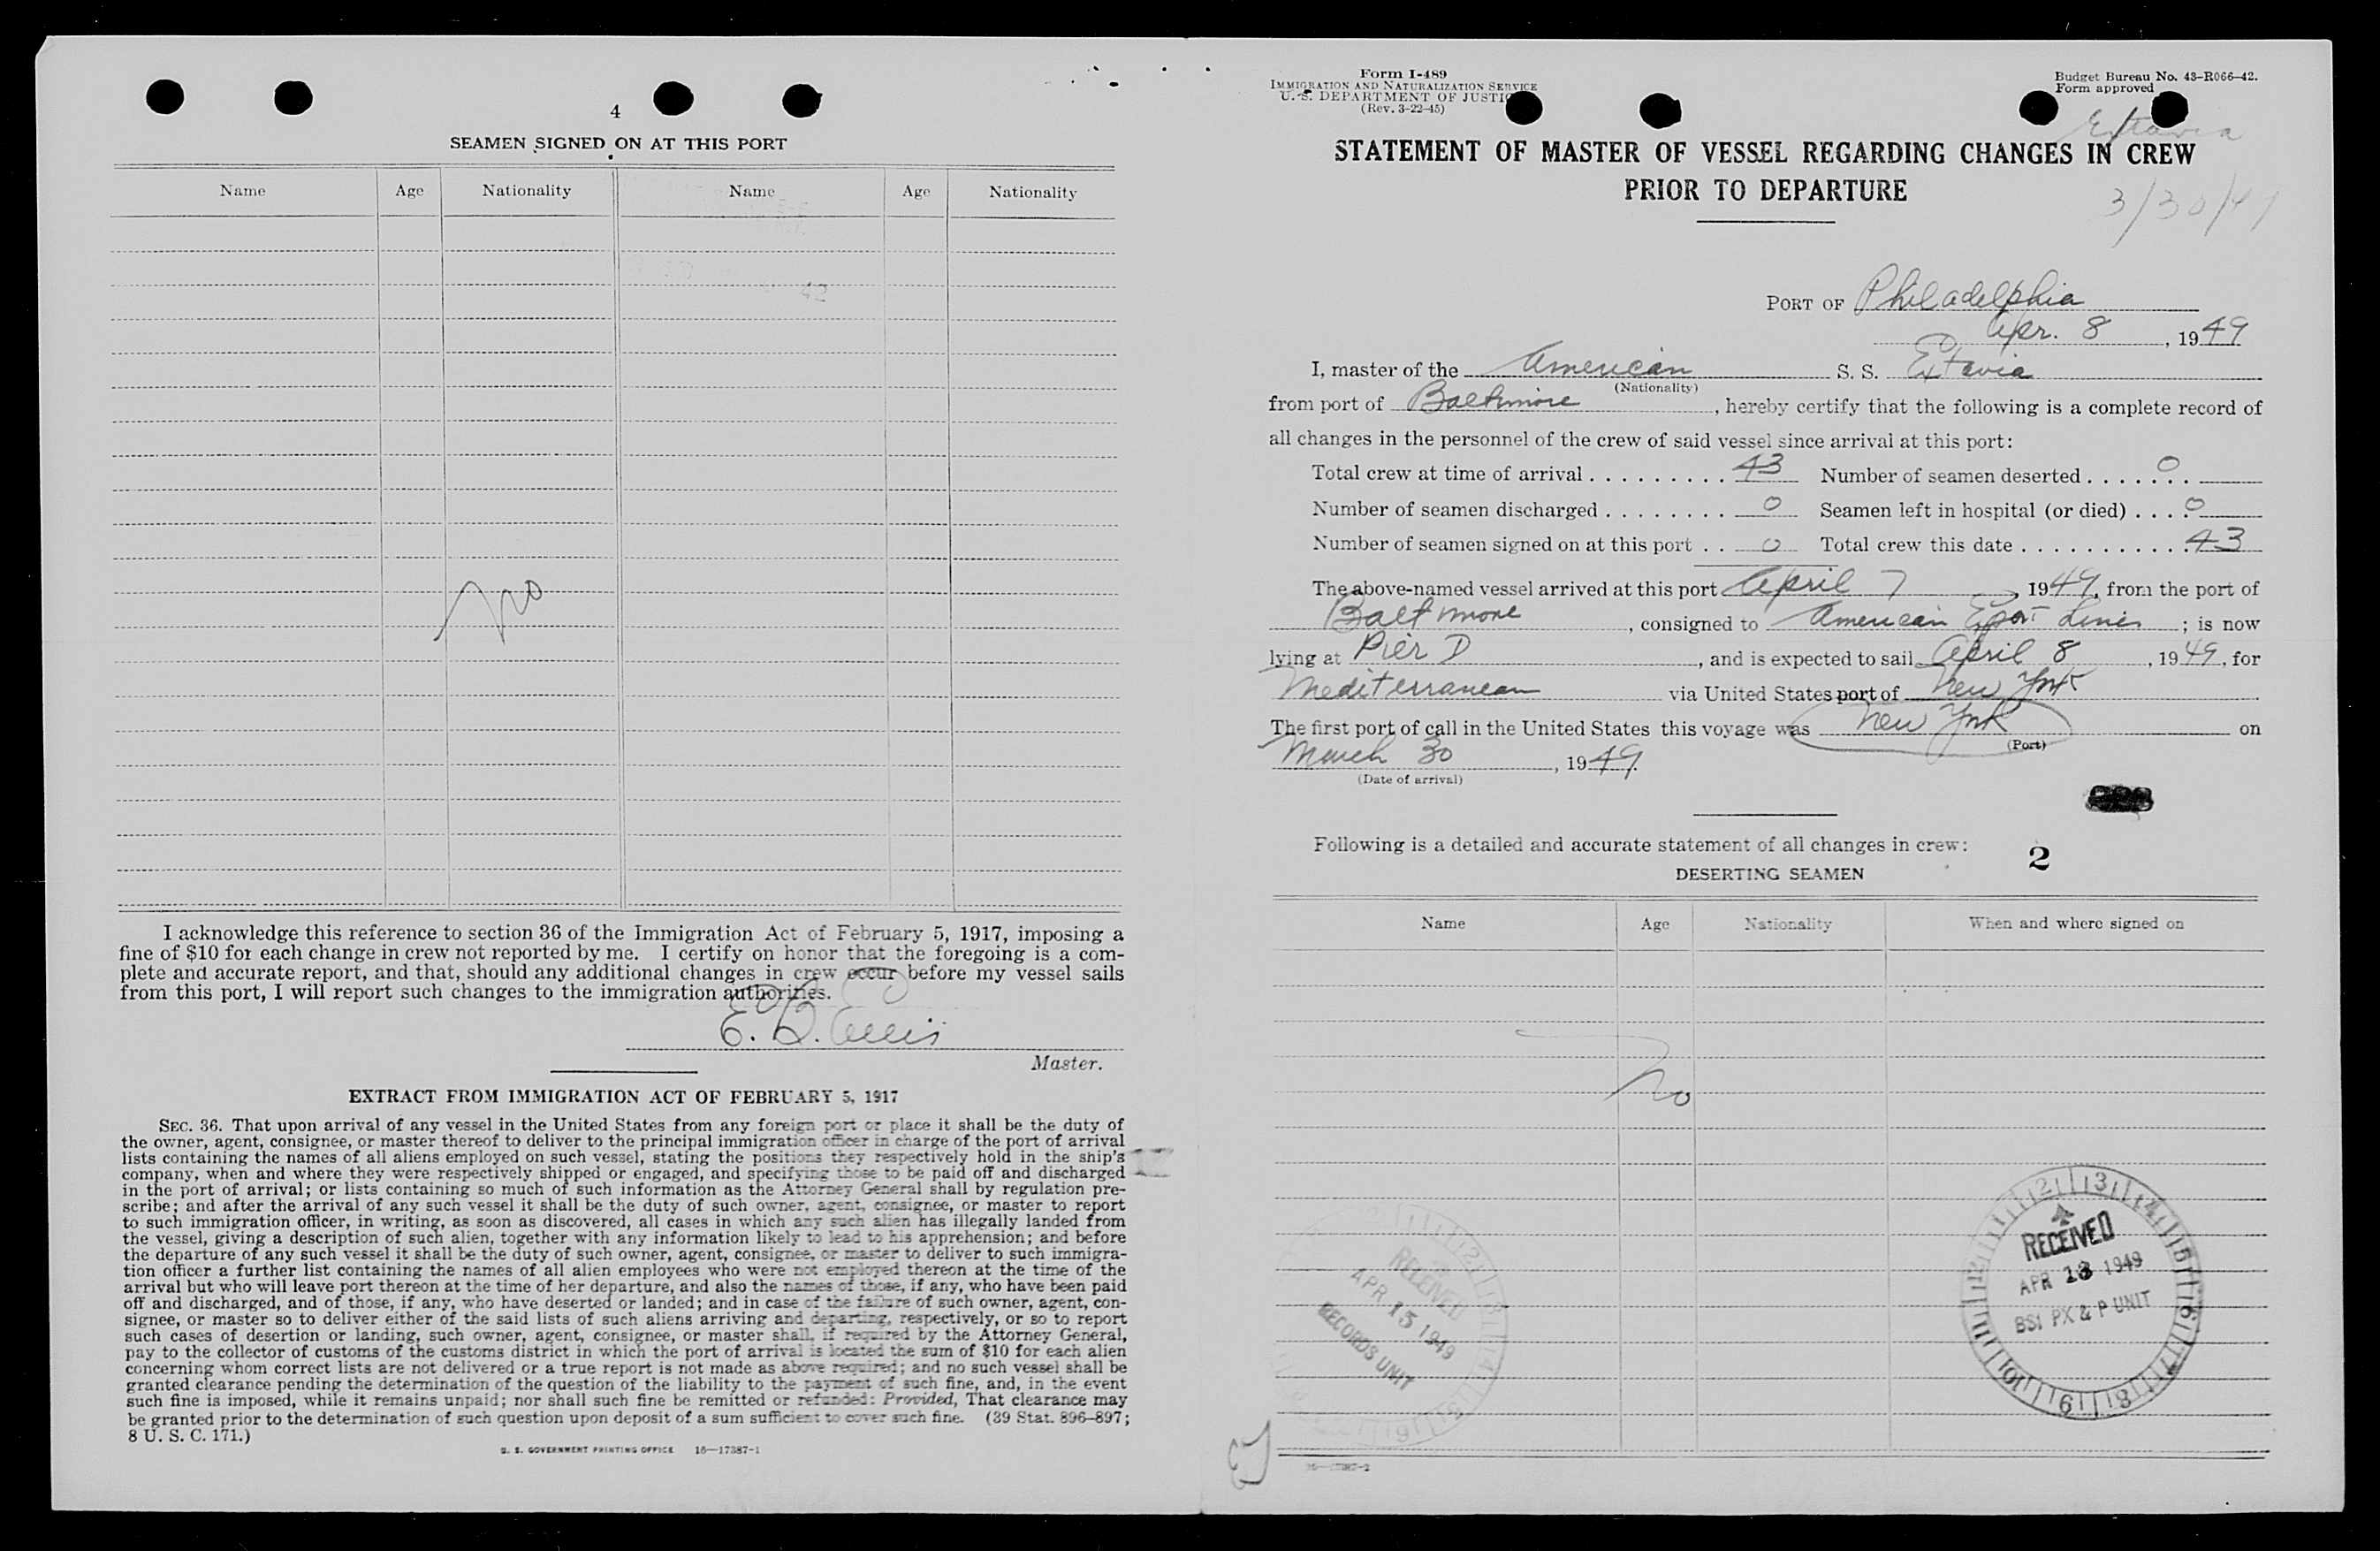 4
SEAMEN SIGNED ON AT THIS PORT
Name Age Nationality Name Age Nationality
42
No
I acknowledge this reference to section 36 of the Immigration Act of February 5, 1917, imposing a
fine of $10 for each change in crew not reported by me. I certify on honor that the foregoing is a com-
plete and accurate report, and that, should any additional changes in crew occur before my vessel sails
from this port, I will report such changes to the immigration authorities.
E. B. Ellis
Master.
EXTRACT FROM IMMIGRATION ACT OF FEBRUARY 5, 1917
SEC. 36. That upon arrival of any vessel in the United States from any foreign port or place it shall be the duty of
the owner, agent, consignee, or master thereof to deliver to the principal immigration officer in charge of the port of arrival
lists containing the names of all aliens employed on such vessel, stating the positions they respectively hold in the ship's
company, when and where they were respectively shipped or engaged, and specifying those to be paid off and discharged
in the port of arrival; or lists containing so much of such information as the Attorney General shall by regulation pre-
scribe; and after the arrival of any such vessel it shall be the duty of such owner, agent, consignee, or master to report
to such immigration officer, in writing, as soon as discovered, all cases in which any such alien has illegally landed from
the vessel, giving a description of such alien, together with any information likely to lead to his apprehension; and before
the departure of any such vessel it shall be the duty of such owner, agent, consignee, or master to deliver to such immigra-
tion officer a further list containing the names of all alien employees who were not employed thereon at the time of the
arrival but who will leave port thereon at the time of her departure, and also the names of those, if any, who have been paid
off and discharged, and of those, if any, who have deserted or landed; and in case of the failure of such owner, agent, con-
signee, or master so to deliver either of the said lists of such aliens arriving and departing, respectively, or so to report
such cases of desertion or landing, such owner, agent, consignee, or master shall, if required by the Attorney General,
pay to the collector of customs of the customs district in which the port of arrival is located the sum of $10 for each alien
concerning whom correct lists are not delivered or a true report is not made as above required; and no such vessel shall be
granted clearance pending the determination of the question of the liability to the payment of such fine, and, in the event
such fine is imposed, while it remains unpaid; nor shall such fine be remitted or refunded: Provided, That clearance may
be granted prior to the determination of such question upon deposit of a sum sufficient to cover such fine. (39 Stat. 896–897;
8 U. S. C. 171.)
U. S. GOVERNMENT PRINTING OFFICE 16—17387-1
Form I-489
IMMIGRATION AND NATURALIZATION SERVICE
U. S. DEPARTMENT OF JUSTIC
(Rev. 3-22-45)
Budget Bureau No. 43–R066–42.
Form approved
Extavia
STATEMENT OF MASTER OF VESSEL REGARDING CHANGES IN CREW
PRIOR TO DEPARTURE
3/30/49
PORT OF Philadelphia
Apr. 8, 1949
I, master of the American S. S. Extavia
(Nationality)
from port of Baltimore, hereby certify that the following is a complete record of
all changes in the personnel of the crew of said vessel since arrival at this port:
Total crew at time of arrival . . . . . . . . . 43 Number of seamen deserted . . . . . . . 0
Number of seamen discharged . . . . . . . . 0 Seamen left in hospital (or died) . . . . 0
Number of seamen signed on at this port . . 0 Total crew this date . . . . . . . . . . . 43
The above-named vessel arrived at this port April 7, 1949, from the port of
Baltimore, consigned to American Export Lines; is now
lying at Pier D, and is expected to sail April 8, 1949, for
Mediterranean via United States port of New York
The first port of call in the United States this voyage was New York on
(Port)
March 30, 1949.
(Date of arrival)
Following is a detailed and accurate statement of all changes in crew:
2
DESERTING SEAMEN
Name Age Nationality When and where signed on
No
RECEIVED
APR 15 1949
RECORDS UNIT
RECEIVED
APR 13 1949
BSI PX & P UNIT
16—17387-2